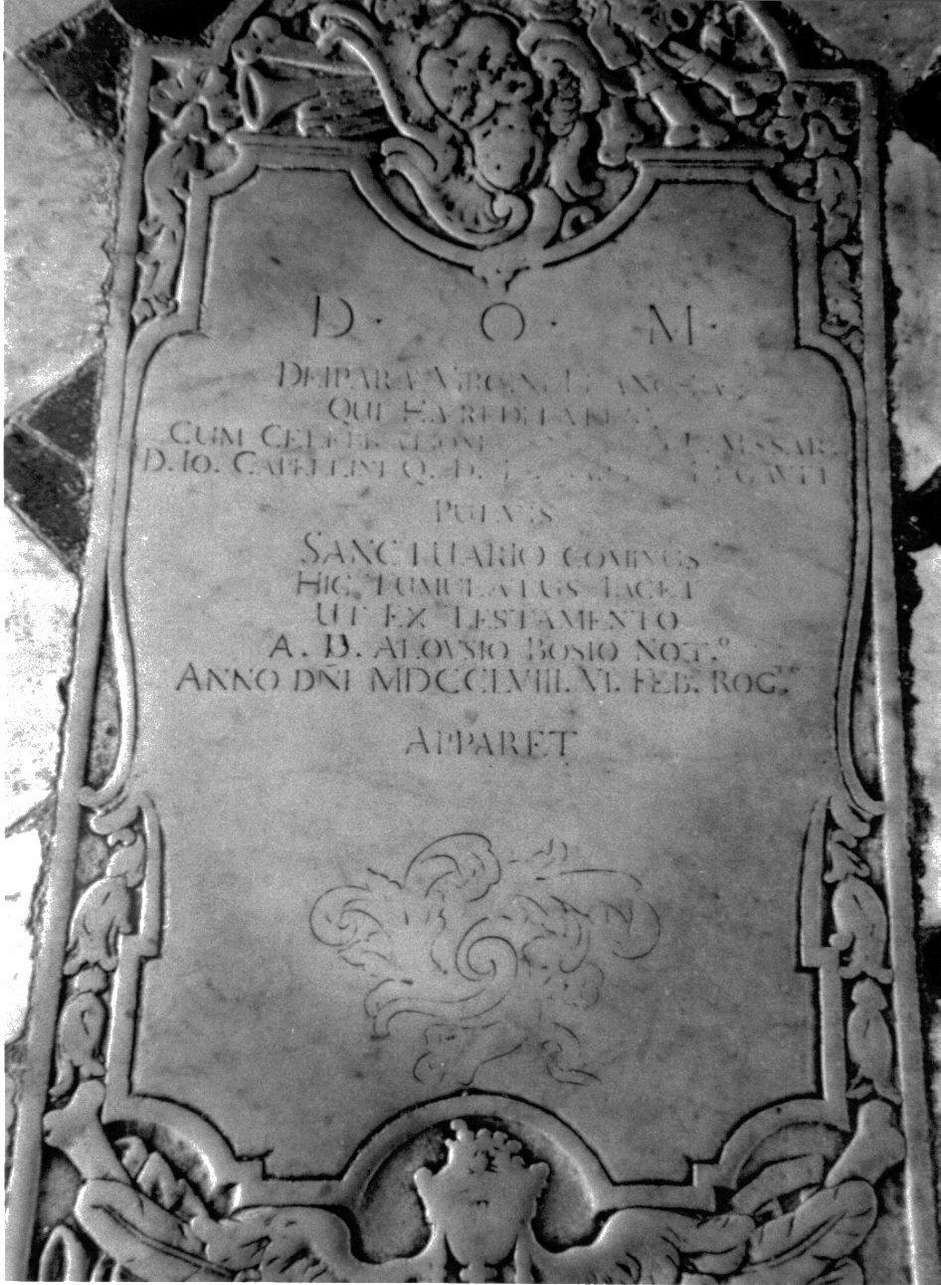 D. O. M.
DEIPARÆ VIRGINI
QUI HÆREDITAREM
CUM CELEBRATIONE MISSAR.
D. IO. CAPELLINI Q. D.
PULVIS
SANCTUARIO COMINUS
HIC TUMULATUS IACET
UT EX TESTAMENTO
A. D. ALOYSIO BOSIO NOT.º
ANNO DÑI MDCCLVIII. VI. FEB. ROG.
APPARET